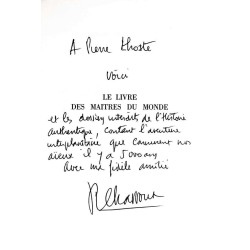 A Pierre Khoste
Voici
LE LIVRE
DES MAITRES DU MONDE
et les dossiers interdits de l'Histoire
authentique, contant l'aventure
interplanétaire que connurent nos
aïeux il y a 5000 ans
Avec ma fidèle amitié
R Charroux